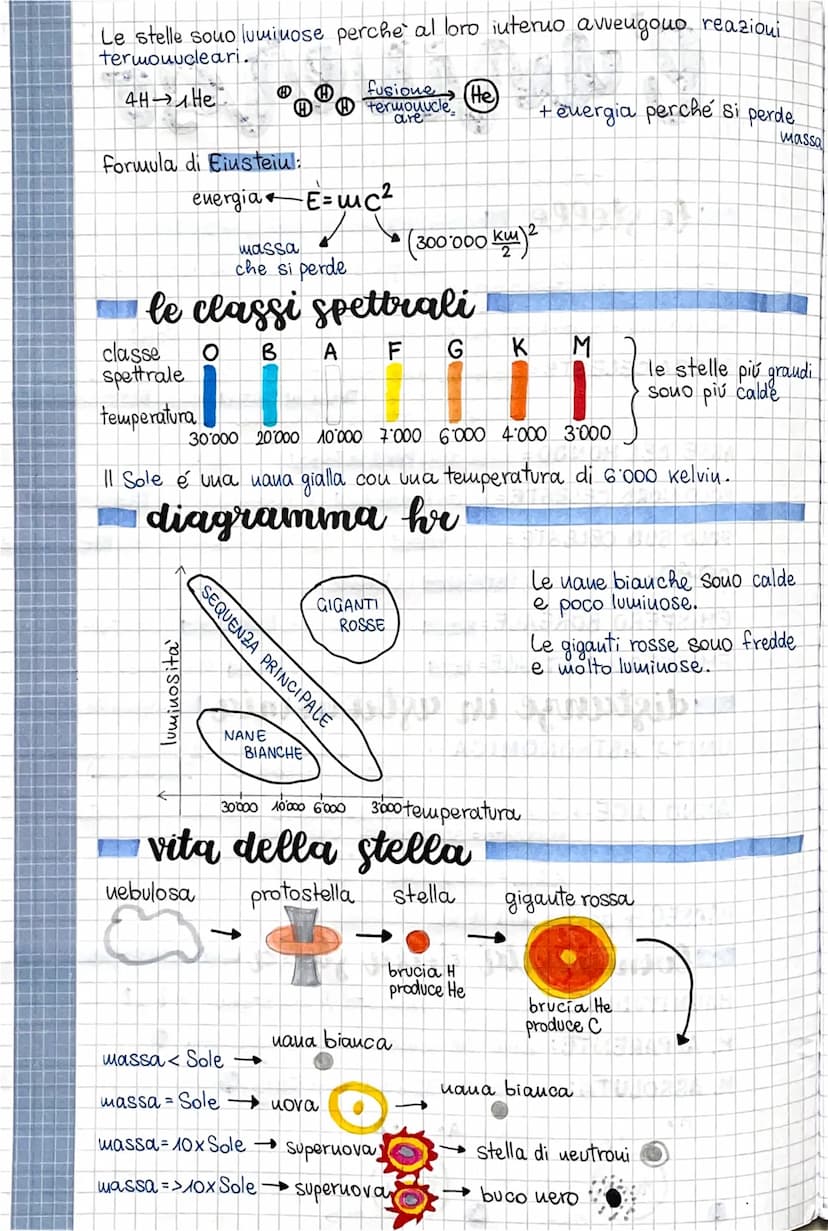 Le stelle sono luminose perchè al loro interno avvengono reazioni
termonucleari.
4H→1He
H H H H
fusione
termonucle
are
He
+ energia perché si perde
massa
Formula di Einstein:
energia ← E=mc²
massa
che si perde
(300'000 km/2)²
le classi spettrali
classe
spettrale
O B A F G K M
temperatura
30'000 20'000 10'000 7'000 6'000 4'000 3'000
le stelle piú grandi
sono piú calde
Il Sole é una nana gialla con una temperatura di 6'000 kelvin.
diagramma hr
luminosità
SEQUENZA PRINCIPALE
GIGANTI
ROSSE
NANE
BIANCHE
30'000 10'000 6'000 3'000 temperatura
Le nane bianche sono calde
e poco luminose.
Le giganti rosse sono fredde
e molto luminose.
vita della stella
nebulosa → protostella → stella → gigante rossa
brucia H
produce He
brucia He
produce C
massa < Sole → nana bianca
massa = Sole → nova → nana bianca
massa = 10 x Sole → supernova → stella di neutroni
massa = > 10 x Sole → supernova → buco nero